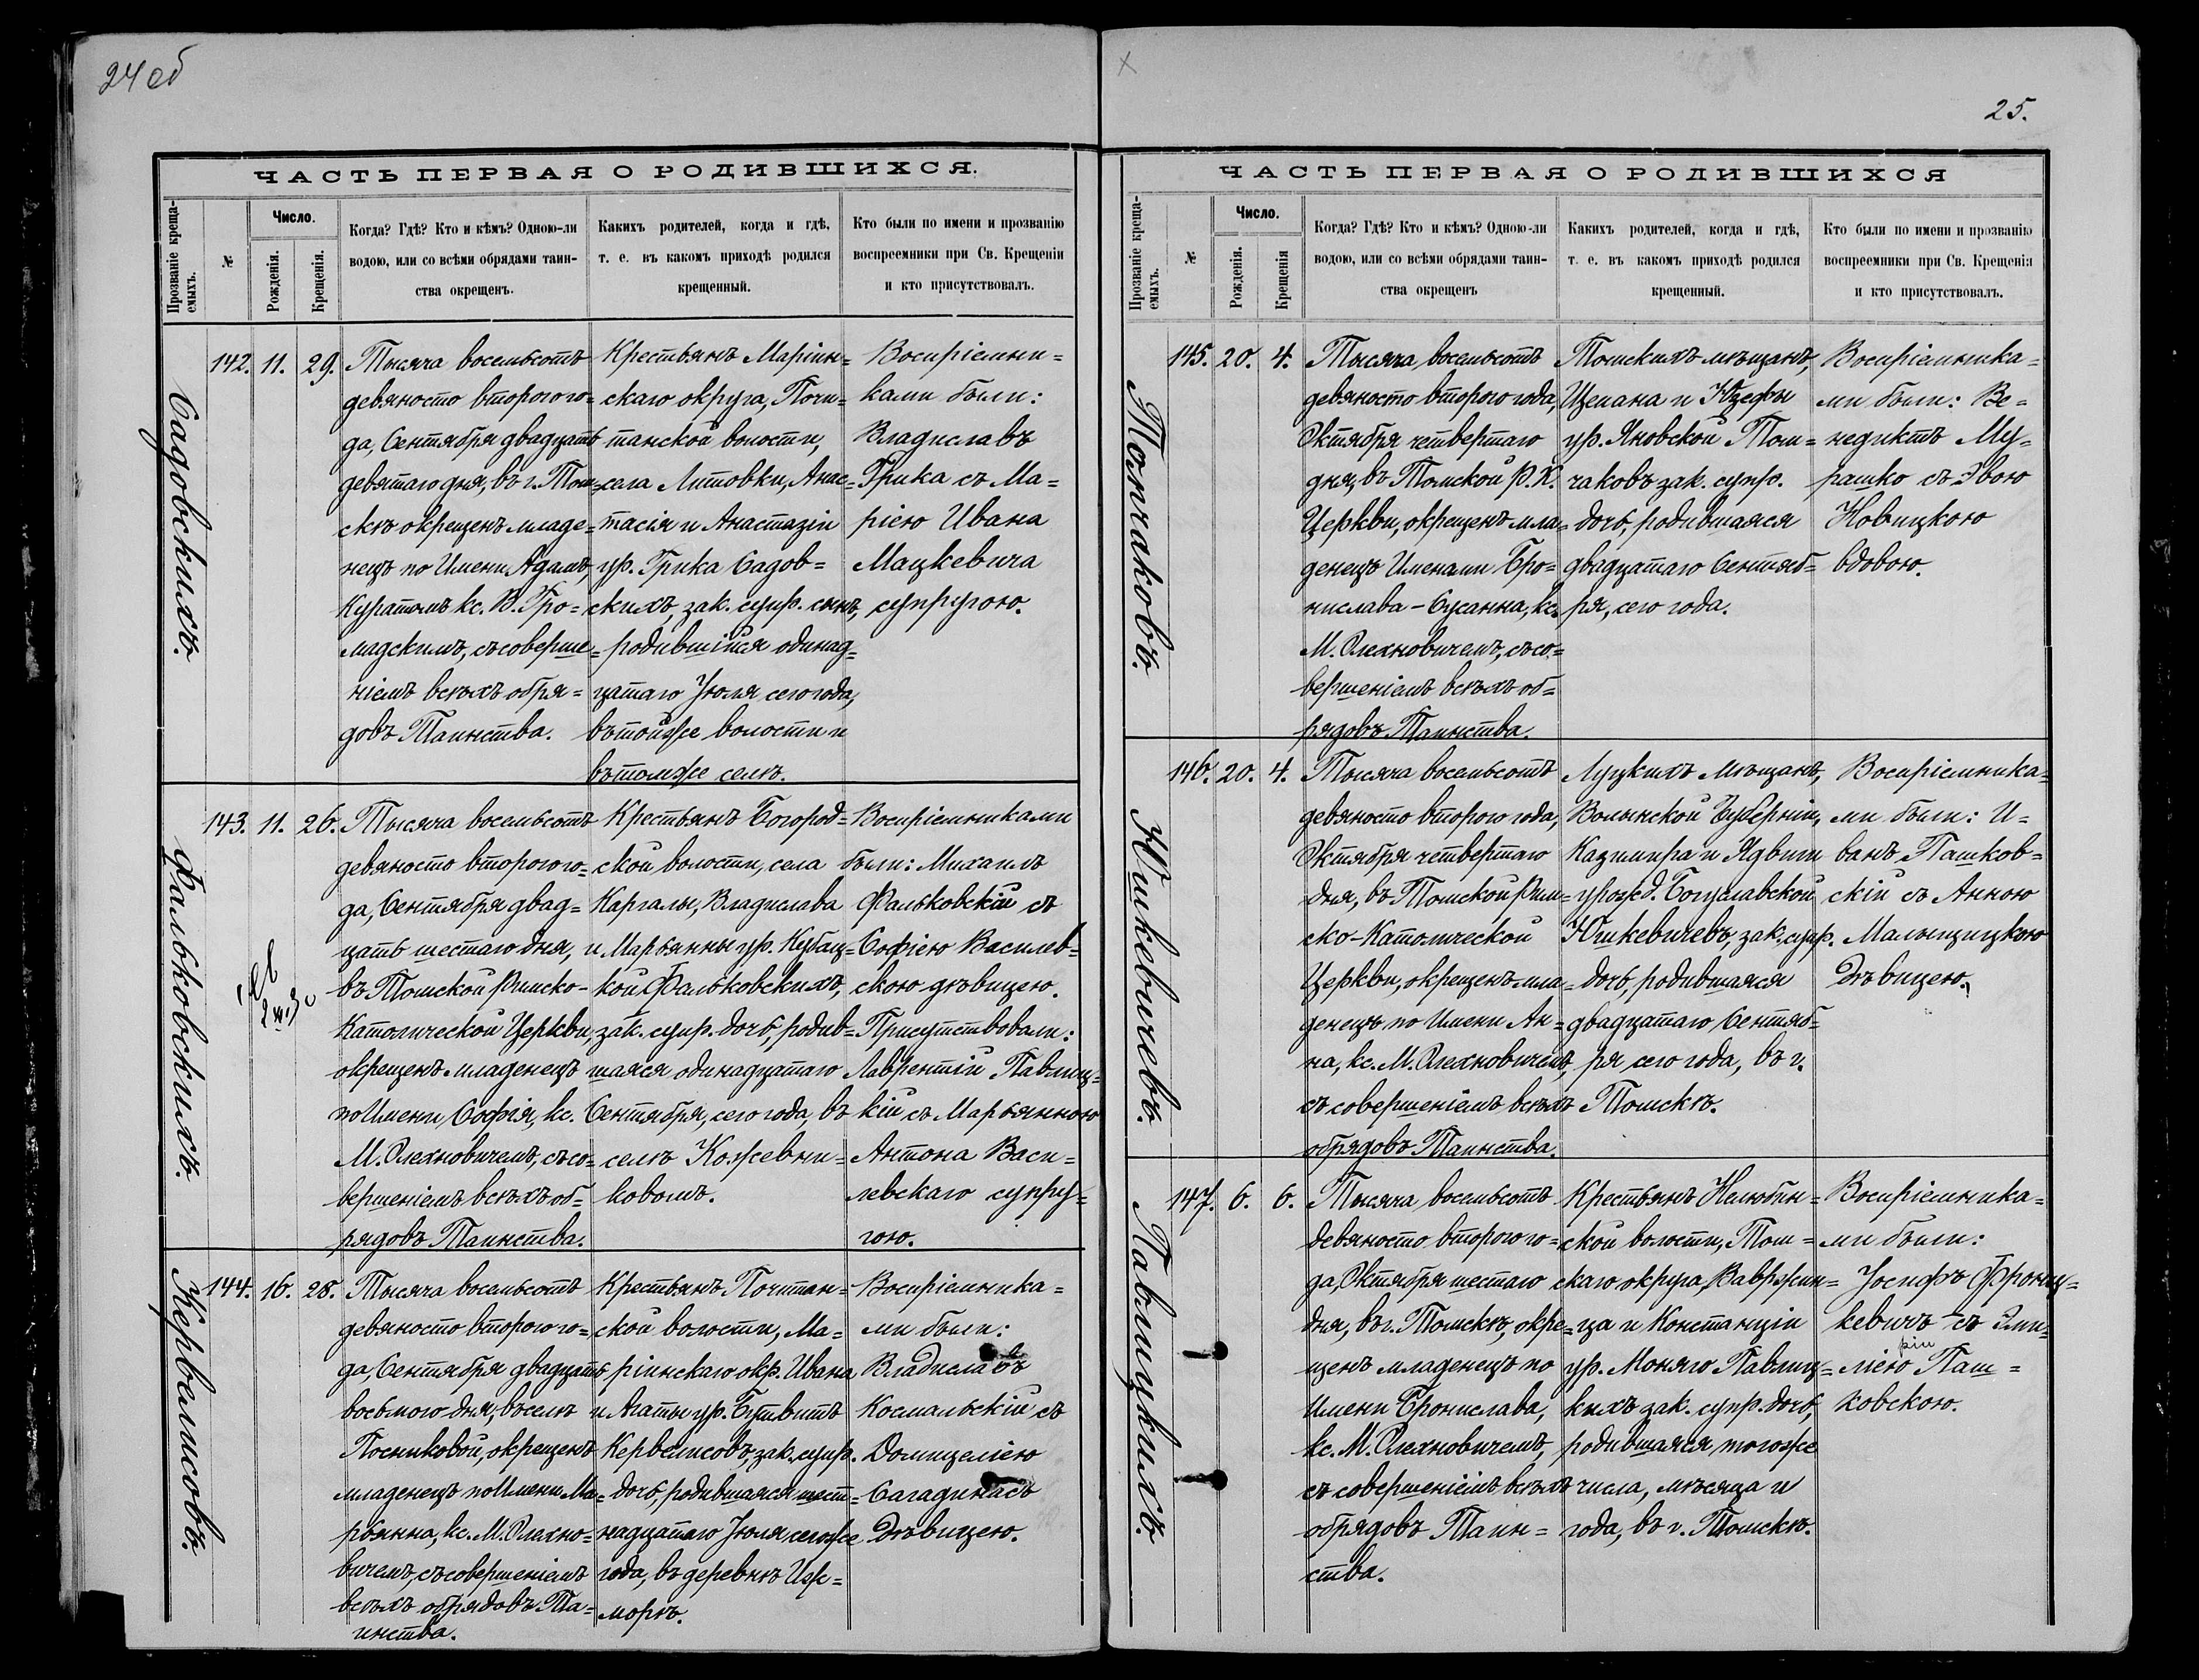 24 об
ЧАСТЬ ПЕРВАЯ О РОДИВШИХСЯ.
Прозваніе креща-
емыхъ.
№
Число.
Рожденія.
Крещенія.
Когда? Гдѣ? Кто и кѣмъ? Одною-ли
водою, или со всѣми обрядами таин-
ства окрещенъ.
Какихъ родителей, когда и гдѣ,
т. е. въ какомъ приходѣ родился
крещенный.
Кто были по имени и прозванію
воспреемники при Св. Крещеніи
и кто присутствовалъ.
Садовскихъ.
142. 11. 29.
Тысяча восемьсотъ
девяносто второго го=
да, Сентября двадцать
девятаго дня, въ г. Том=
скѣ окрещенъ младе=
нецъ по Имени Адамъ,
Куратомъ кс. В. Гро=
мадскимъ, съ соверше=
ніемъ всѣхъ обря=
довъ Таинства.
Крестьянъ Маріин=
скаго округа, Почи=
танской волости,
села Литовки, Анас=
тасія и Анастазіи
ур. Грика Садов=
скихъ, зак. супр. сынъ,
родившійся одинад=
цатаго Іюля сего года,
въ той же волости и
въ томъ же селѣ.
Воспріемни=
ками были:
Владиславъ
Грика съ Ма=
ріею Ивана
Мацкевича
супругою.
Фальковскихъ.
143. 11. 26.
Тысяча восемьсотъ
девяносто второго го=
да, Сентября двад=
цать шестаго дня,
въ Томской Римско-
Католической Церкви,
окрещенъ младенецъ
по Имени Софія, кс.
М. Олехновичемъ, съ со=
вершеніемъ всѣхъ об=
рядовъ Таинства.
Крестьянъ Богород=
ской волости, села
Каргалы, Владислава
и Марьянны ур. Кубац=
кой Фальковскихъ,
зак. супр. дочь, родив=
шаяся одинадцатаго
Сентября, сего года, въ
селѣ Кожевни=
ковомъ.
Воспріемниками
были: Михаилъ
Фальковскій съ
Софіею Василев=
скою дѣвицею.
Присутствовали:
Лаврентій Павлиц=
кій съ Марьянною
Антона Васи=
левскаго супру=
гою.
Кервелисовъ.
144. 16. 28.
Тысяча восемьсотъ
девяносто второго го=
да, Сентября двадцать
восьмого дня, въ селѣ
Постниковой, окрещенъ
младенецъ по Имени Ма=
рьянна, кс. М. Олехно=
вичемъ, съ совершеніемъ
всѣхъ обрядовъ Та=
инства.
Крестьянъ Почитан=
ской волости, Ма=
ріинскаго окр. Ивана
и Агаты ур. Бутвитъ
Кервелисовъ, зак. супр.
дочь, родившаяся шест=
надцатаго Іюля сего же
года, въ деревнѣ Иж=
моркѣ.
Воспріемника=
ми были:
Владиславъ
Космальскій съ
Домицеліею
Сагадинасъ
Дѣвицею.
25.
ЧАСТЬ ПЕРВАЯ О РОДИВШИХСЯ
Прозваніе креща-
емыхъ.
№
Число.
Рожденія.
Крещенія
Когда? Гдѣ? Кто и кѣмъ? Одною-ли
водою, или со всѣми обрядами таин-
ства окрещенъ
Какихъ родителей, когда и гдѣ,
т. е. въ какомъ приходѣ родился
крещенный.
Кто были по имени и прозванію
воспреемники при Св. Крещеніи
и кто присутствовалъ.
Томчаковъ.
145. 20. 4.
Тысяча восемьсотъ
девяносто второго года,
Октября четвертаго
дня, въ Томской Р. К.
Церкви, окрещенъ мла=
денецъ Именами Бро=
нислава-Сусанна, кс.
М. Олехновичемъ, съ со=
вершеніемъ всѣхъ об=
рядовъ Таинства.
Томскихъ мѣщанъ,
Щепана и Юзефы
ур. Яновской Том=
чаковъ зак. супр.
дочь, родившаяся
двадцатаго Сентяб=
ря, сего года.
Воспріемника=
ми были: Бе=
недиктъ Му=
рашко съ Эвою
Новицкою
вдовою.
Юшкевичевъ.
146. 20. 4.
Тысяча восемьсотъ
девяносто второго года,
Октября четвертаго
дня, въ Томской Рим=
ско-Католической
Церкви, окрещенъ мла=
денецъ по Имени Ан=
на, кс. М. Олехновичемъ,
съ совершеніемъ всѣхъ
обрядовъ Таинства.
Луцкихъ Мѣщанъ,
Волынской Губерніи,
Казимира и Ядвиги
урожд. Богуславской
Юшкевичевъ, зак. супр.
дочь, родившаяся
двадцатаго Сентяб=
ря сего года, въ г.
Томскѣ.
Воспріемника=
ми были: И=
ванъ Пашков=
скій съ Анною
Малыщицкою
Дѣвицею.
Павлицкихъ.
147. 6. 6.
Тысяча восемьсотъ
девяносто второго го=
да, Октября шестаго
дня, въ г. Томскѣ, окре=
щенъ младенецъ по
Имени Бронислава,
кс. М. Олехновичемъ,
съ совершеніемъ всѣхъ
обрядовъ Таин=
ства.
Крестьянъ Нелюбин=
ской волости, Том=
скаго округа, Вавржин=
ца и Констанціи
ур. Моняго Павлиц=
кихъ зак. супр. дочь,
родившаяся того же
числа, мѣсяца и
года, въ г. Томскѣ.
Воспріемника=
ми были:
Іосифъ Фронц=
кевичъ съ Эми=
ліею Паш=
ковскою.